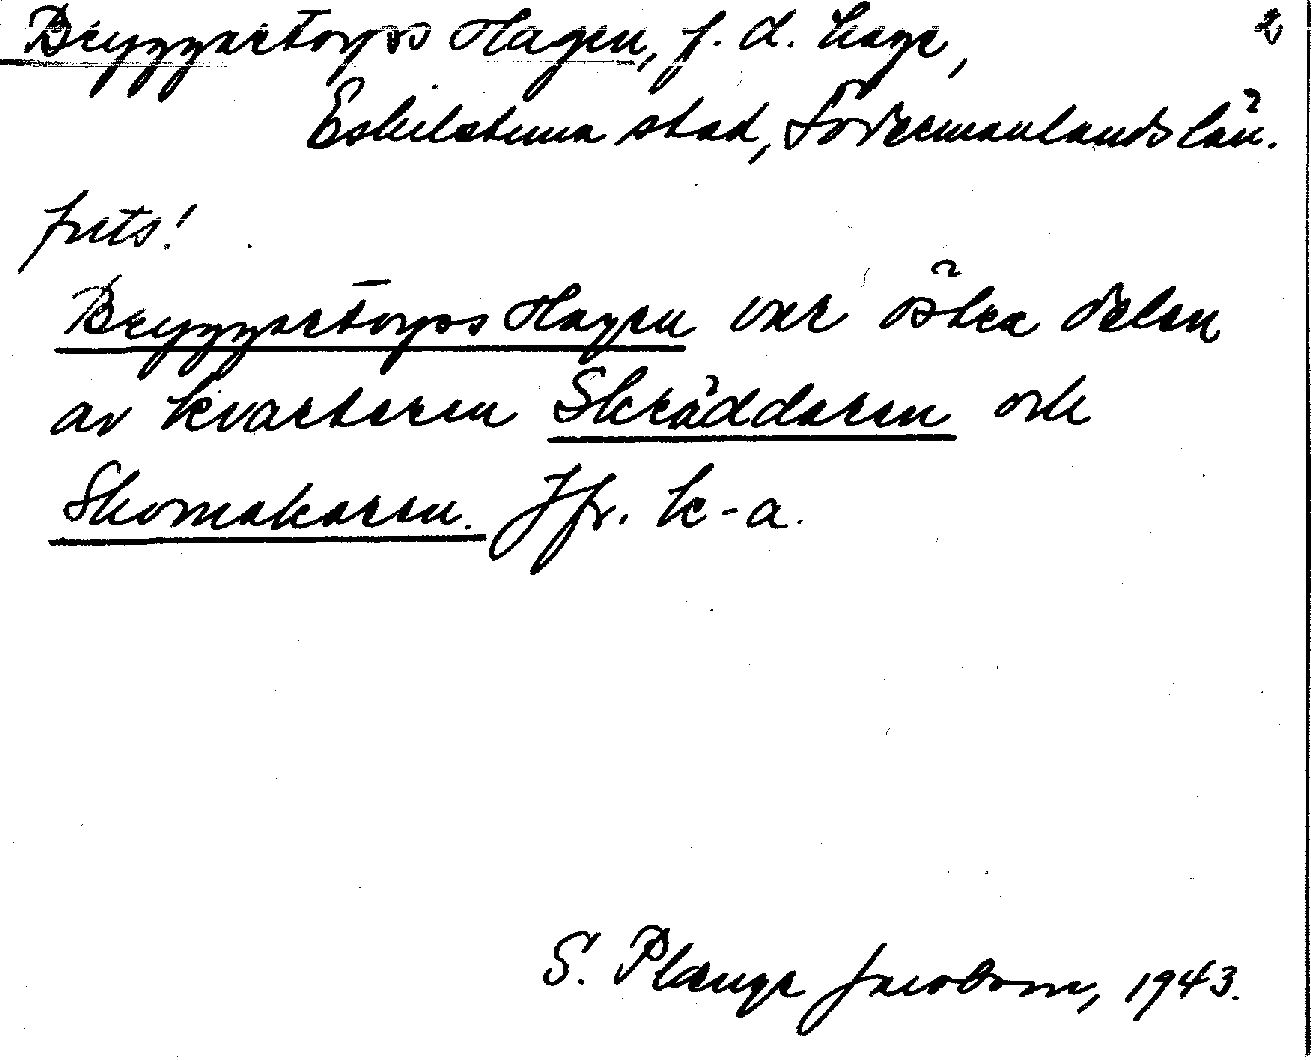 Bryggartorps Hagen, f. d. hage, 2
Eskilstuna stad, Södermanlands län.
forts!
Bryggartorps Hagen var östra delen
av kvarteren Skräddaren och
Skomakaren. Jfr. k-a.
S. Plænge Jacobson, 1943.